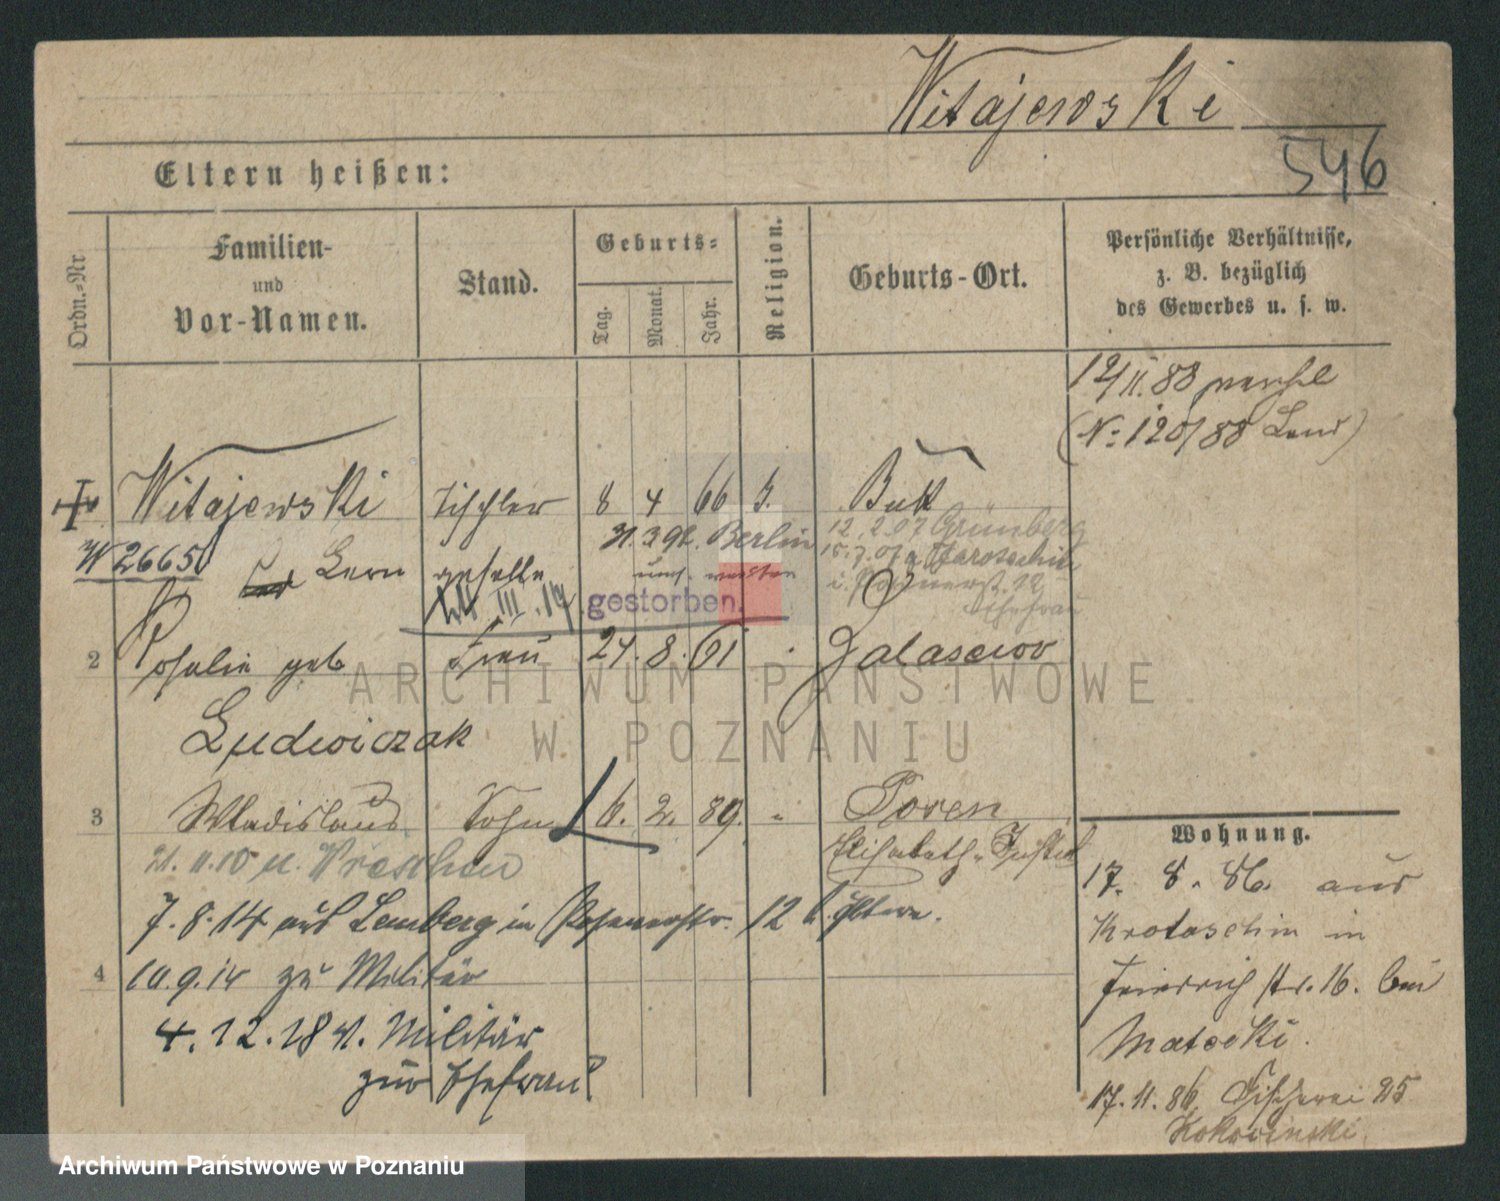 Witajewski
546
Eltern heißen:
Ordn.-Nr
Familien-
und
Vor-Namen.
Stand.
Geburts-
Tag.
Monat.
Jahr.
Religion.
Geburts-Ort.
Persönliche Verhältnisse,
z. B. bezüglich
des Gewerbes u. s. w.
12/11. 88
(No 120/88
Witajewski Tischler 8 4 66 Buk
31.3.92. Berlin 12.2.07 Grünberg
W 2665 Leon geselle
III. 19 gestorben. Ehefrau
2 Rosalie geb Frau 27. 8. 61
Ludwiczak
3 Wladislaus Sohn 6. 2. 89. " Posen
21.11.10 n. Wreschen
7.8.14 aus Lemberg in Posenerstr. 12 b. Eltern.
4 10.9.14 zu Militär
4.12.18 v. Militär
zur Ehefrau
Wohnung.
17. 8. 86. aus
Krotoschin in
str. 16. bei
Matecki.
17.11.86 Fischerei 25
ARCHIWUM PAŃSTWOWE
W POZNANIU
Archiwum Państwowe w Poznaniu